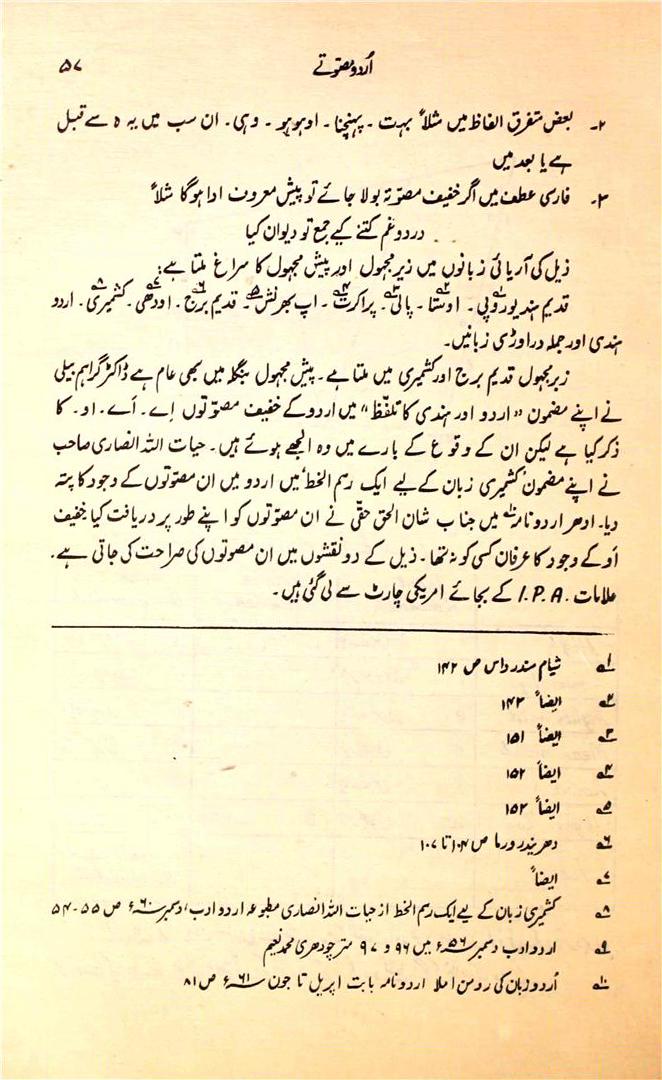 اُردو مصوّتے ۵۷
۲۔ بعض متفرق الفاظ میں مثلاً بہت ۔ پہنچنا ۔ اوہوہو ۔ وہی۔ ان سب میں یہ ہ سے قبل
ہے یا بعد میں
۳۔ فارسی عطف میں اگر خفیف مصوّتہ بولا جائے تو پیش معروف ادا ہوگا مثلاً
درد و غم کتنے کیے جمع تو دیوان کیا
ذیل کی آریائی زبانوں میں زیر مجہول اور پیش مجہول کا سراغ ملتا ہے:
قدیم ہند یوروپی۔ اوستا ۔ پالی ۔ پراکرت ۔ اپ بھرنش ۔ قدیم برج ۔ اودھی ۔ کشمیری ۔ اردو
ہندی اور جملہ دراوڑی زبانیں۔
زبر مجہول قدیم برج اور کشمیری میں ملتا ہے۔ پیش مجہول بنگلہ میں بھی عام ہے ڈاکٹر گراہم بیلی
نے اپنے مضمون "اردو اور ہندی کا تلفّظ" میں اردو کے خفیف مصوّتوں اِے۔ اَے۔ او۔ کا
ذکر کیا ہے لیکن ان کے وقوع کے بارے میں وہ الجھے ہوئے ہیں۔ حیات اللہ انصاری صاحب
نے اپنے مضمون 'کشمیری زبان کے لیے ایک رسم الخط' میں اردو میں ان مصوّتوں کے وجود کا پتہ
دیا۔ ادھر اردو نامہ میں جناب شان الحق حقّی نے ان مصوّتوں کو اپنے طور پر دریافت کیا خفیف
اَو کے وجود کا عرفان کسی کو نہ تھا۔ ذیل کے دو نقشوں میں ان مصوتوں کی صراحت کی جاتی ہے۔
علامات I.P.A. کے بجائے امریکی چارٹ سے لی گئی ہیں۔
۱؎ شیام سندر داس ص ۱۴۲
۲؎ ایضاً ۱۴۳
۳؎ ایضاً ۱۵۱
۴؎ ایضاً ۱۵۲
۵؎ ایضاً ۱۵۳
۶؎ دھریندر ورما ص ۱۰۴ تا ۱۰۷
۷؎ ایضاً
۸؎ کشمیری زبان کے لیے ایک رسم الخط از حیات اللہ انصاری مطبوعہ اردو ادب، دسمبر ۶۰ء ص ۵۵-۵۴
۹؎ اردو ادب دسمبر ۵۶ء میں ۹۶ و ۹۷ مترجم چودھری محمد نعیم
۱۰؎ اُردو زبان کی رومن املا اردو نامہ بابت اپریل تا جون ۶۱ء ص ۸۱